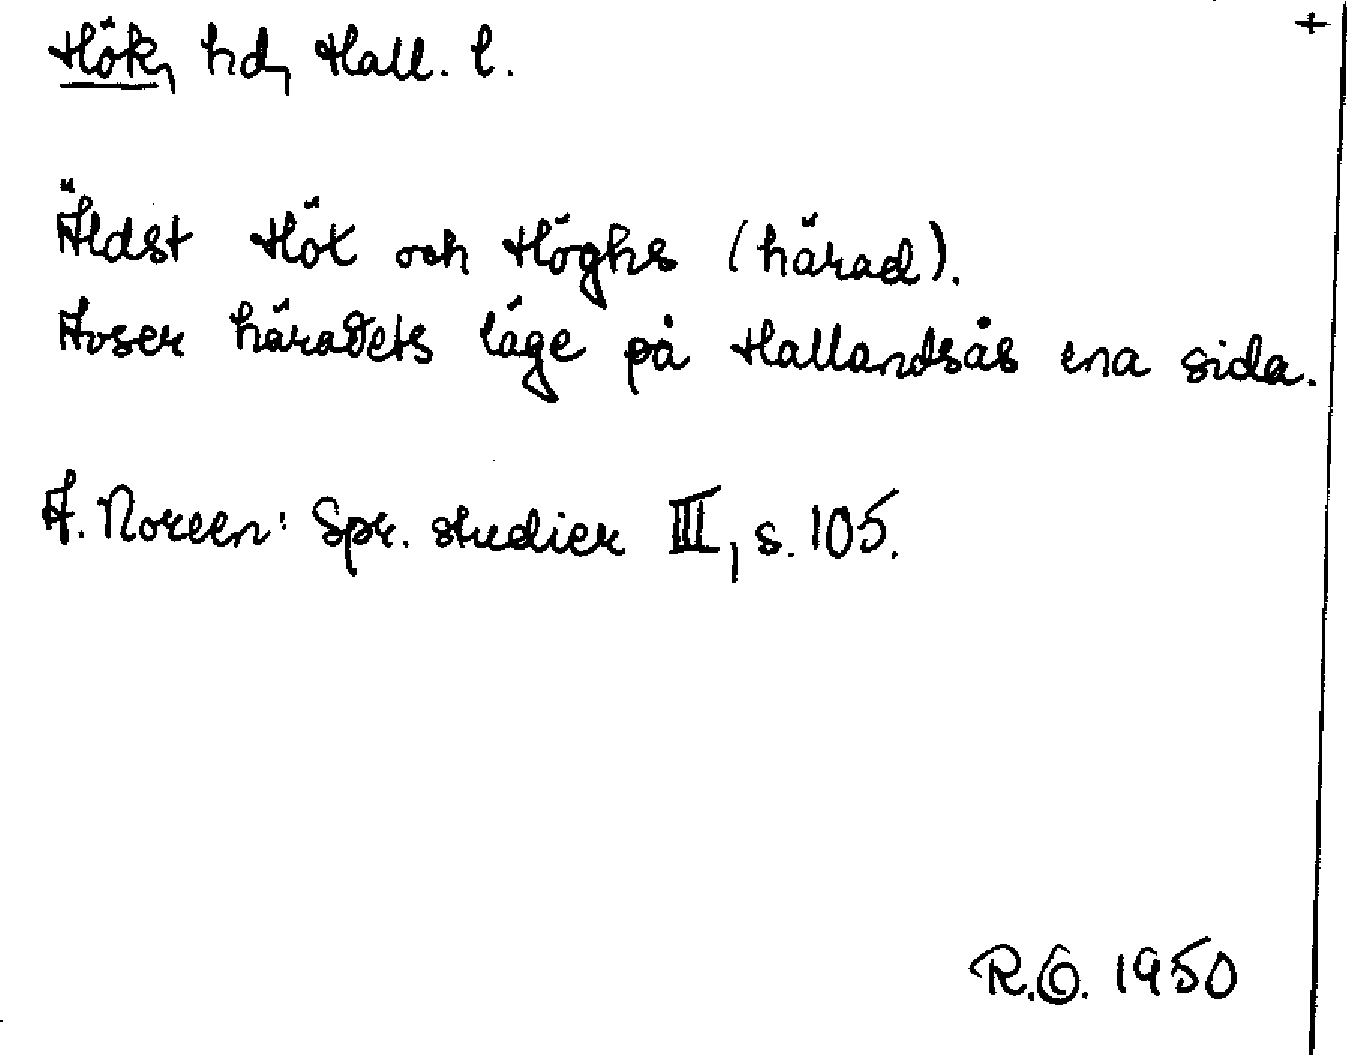 +
Hök, hd, Hall. l.
Äldst Hök och Höghs (härad).
Avser häradets läge på Hallandsås ena sida.
A. Noreen: Spr. studier III, s. 105.
R.G. 1950